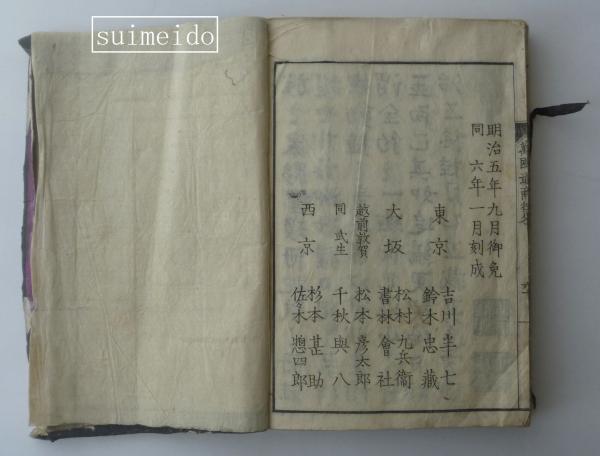 suimeido
明治五年九月御免
同 六年一月刻成
東京 吉川半七
鈴木忠藏
大坂 松村九兵衞
書林會社
越前敦賀 松本彦太郎
同 武生 千秋與八
西京 杉本甚助
佐々木惣四郎